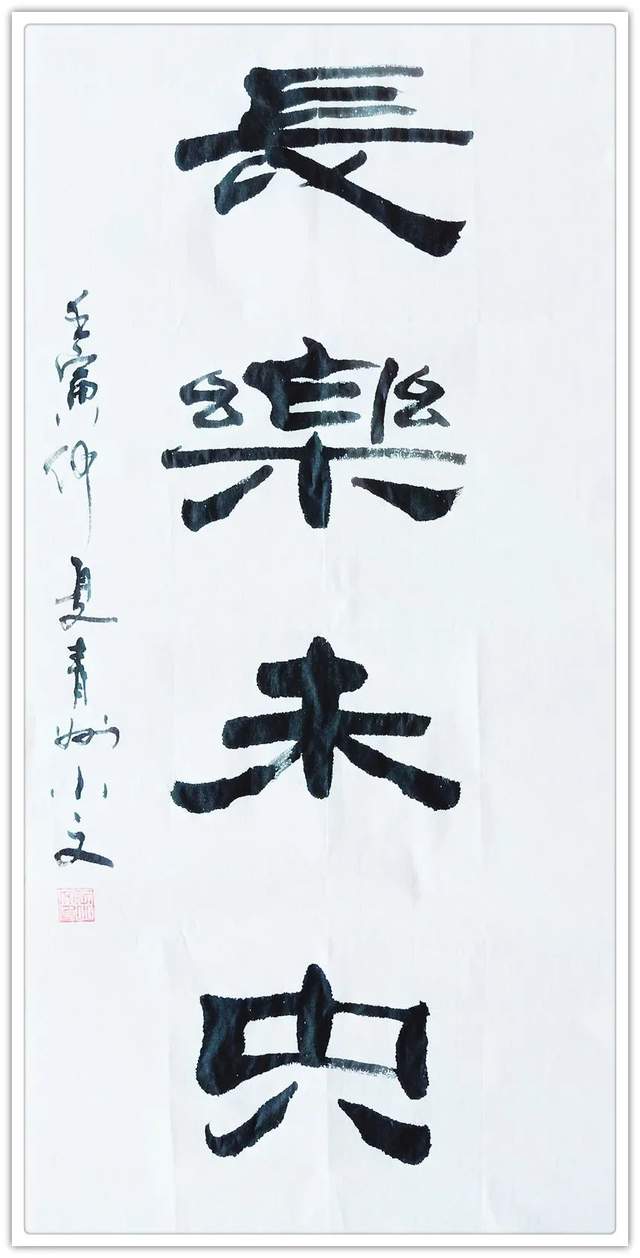 長樂未央
壬寅仲夏青州小文